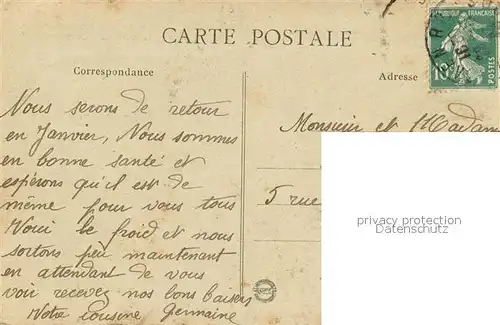 CARTE POSTALE
REPUBLIQUE FRANÇAISE
10
POSTES
Correspondance
Adresse
Nous serons de retour
en Janvier, Nous sommes
en bonne santé et
espérons qu'il est de
même pour vous tous
Voici le froid et nous
sortons peu maintenant
en attendant de vous
voir recevez nos bons baisers
Votre Cousine Germaine
Monsieur et Madam
5 rue
privacy protection
Datenschutz